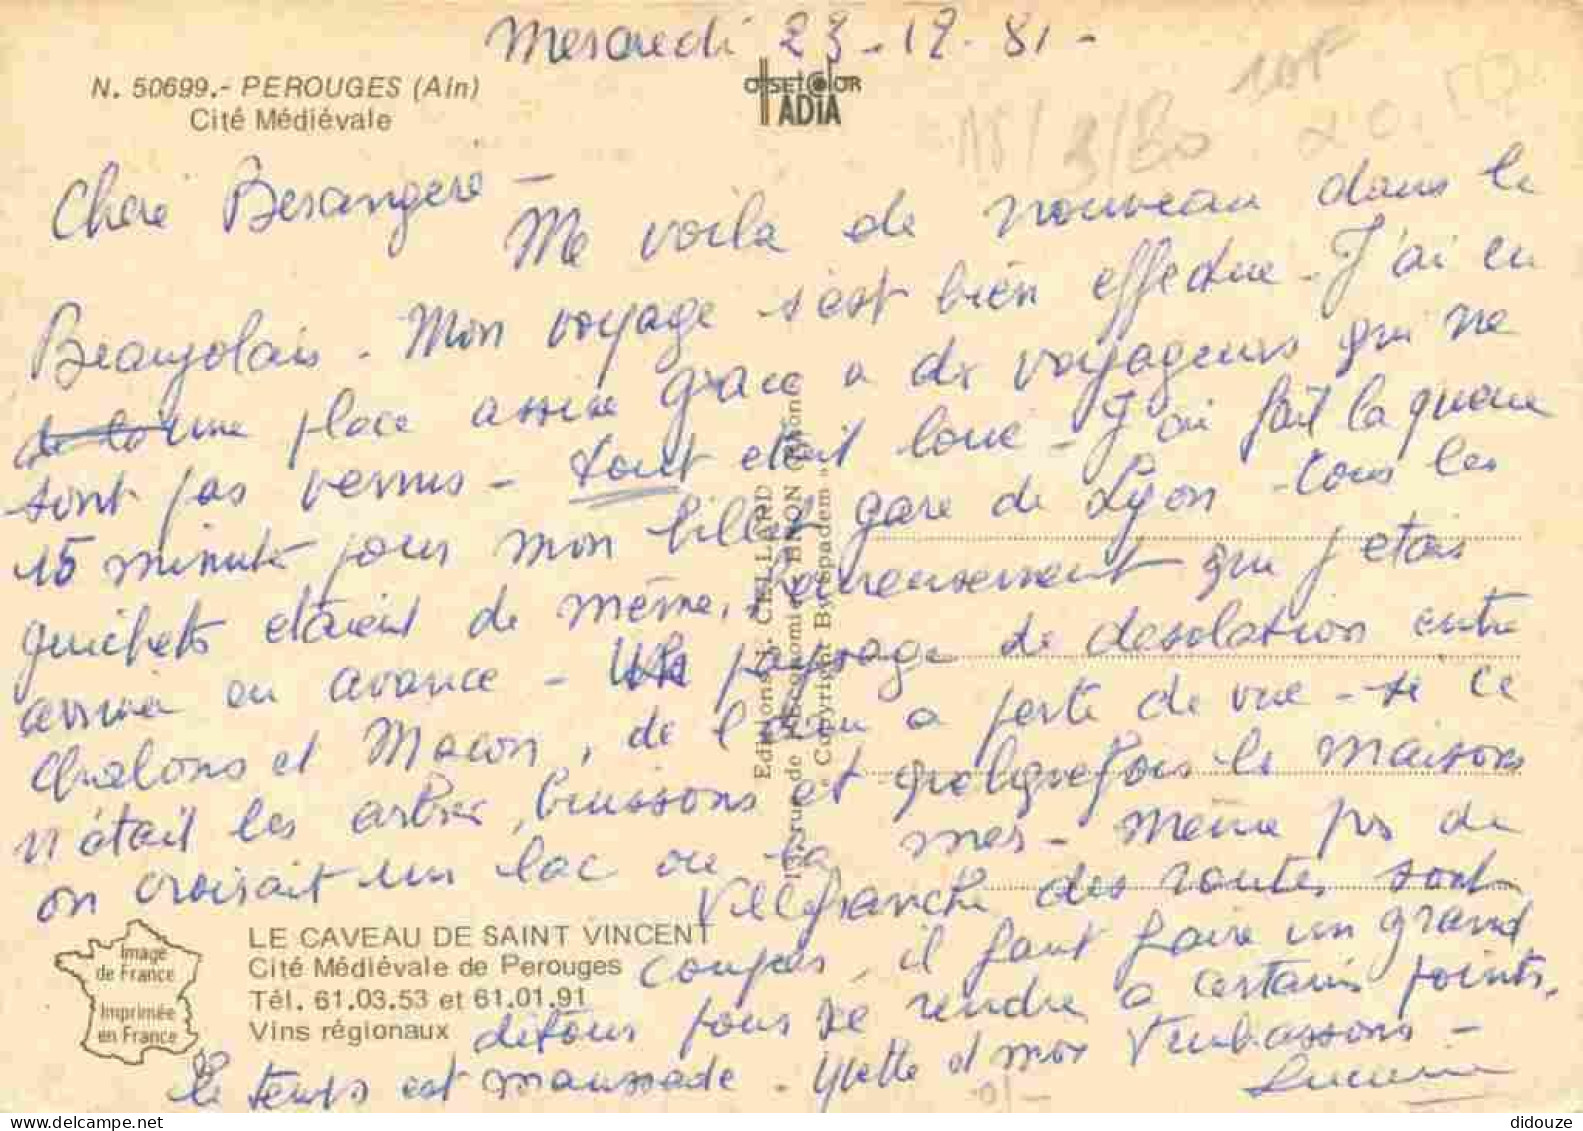 Mercredi 23-12-81-
N. 50699.- PEROUGES (Ain)
Cité Médiévale
OFFSET COLOR
IADIA
18/3/80
10F
Cheré Berangere -
Me voila de nouveau dans le
Beaujolais. Mon voyage s'est bien effectue - J'ai eu
une place assise grace a dix voyageurs qui ne
sont pas venus - tout etait loué - J'ai fait la queue
15 minute pour mon billet gare de Lyon - tous les
guichets etaient de même, heureusement que j'etais
arrivée en avance - un paysage de desolation entre
Chalons et Macon, de l'eau a perte de vue - si ce
n'était les arbres, buissons et quelquefois le maisons
on croirait un lac ou la mer - même prs de
Villefranche des routes sont
coupes, il faut faire un grand
détour pour se rendre a certains points.
le temps est maussade - Yvette et moi t'embrassons -
Lucienne
Editions J. CELLARD
rue de l'Economie BRON (Rhône)
« Copyright By Spadem »
Image
de France
Imprimée
en France
LE CAVEAU DE SAINT VINCENT
Cité Médiévale de Perouges
Tél. 61.03.53 et 61.01.91
Vins régionaux
didouze